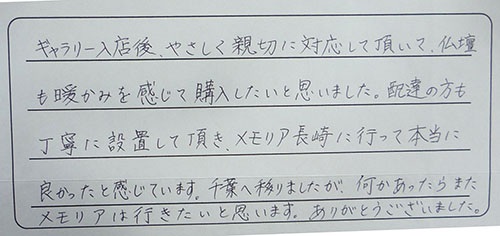 ギャラリー入店後、やさしく親切に対応して頂いて、仏壇
も暖かみを感じて購入したいと思いました。配達の方も
丁寧に設置して頂き、メモリア長崎に行って本当に
良かったと感じています。千葉へ移りましたが、何かあったらまた
メモリアは行きたいと思います。ありがとうございました。